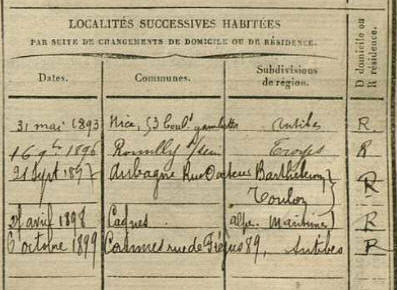 LOCALITÉS SUCCESSIVES HABITÉES
PAR SUITE DE CHANGEMENTS DE DOMICILE OU DE RÉSIDENCE.
Dates. Communes. Subdivisions de région. D domicile ou R résidence.
31 mai 1893 Nice, 53 boulд gambetta Antibes R
16 9bre 1896 Romilly s/Seine Troyes R
21 Sept 1897 Aubagne Rue Docteur Barthelemy R
Toulon
21 avril 1898 Cagnes Alpes Maritimes R
6 octobre 1899 Cannes rue de Fréjus 89, Antibes R